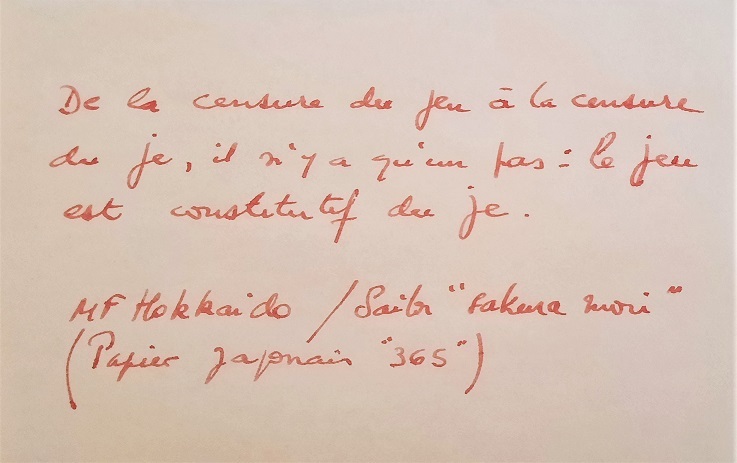 De la censure du jeu à la censure
du je, il n'y a qu'un pas : le jeu
est constitutif du je.
MF Hokkaido / Saibi "sakura mori"
(Papier japonais "365")